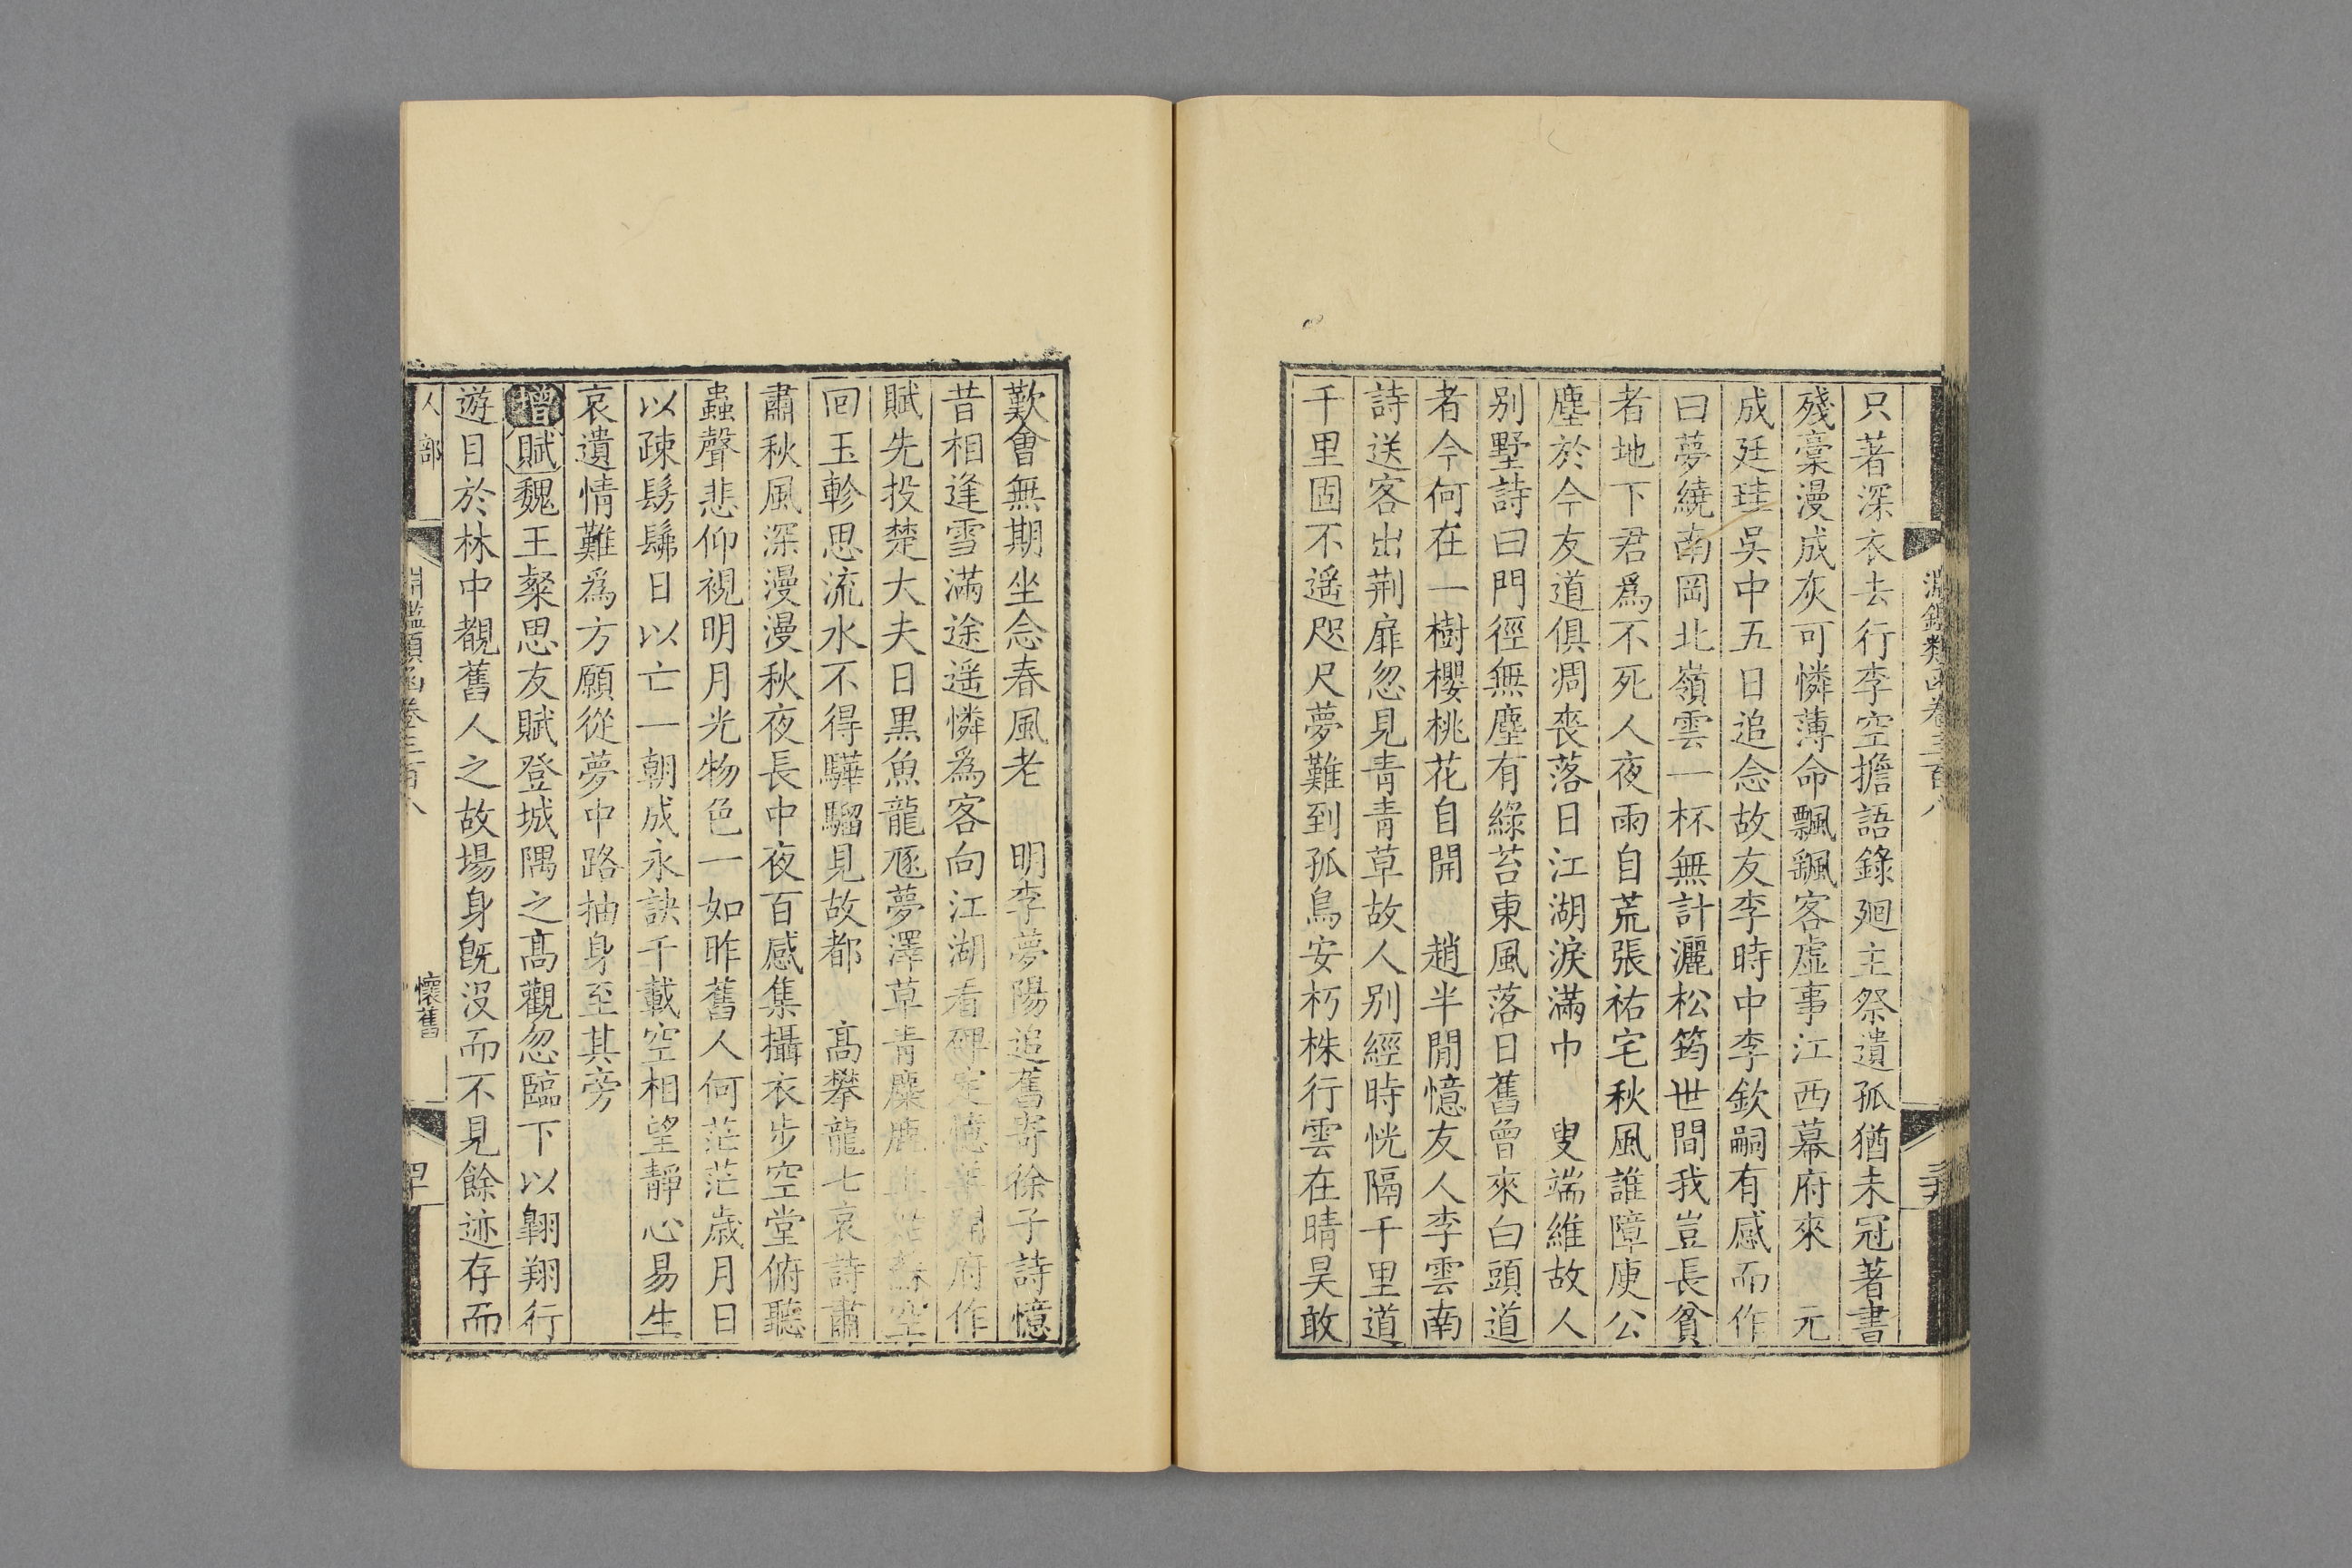 淵鑑類函卷三百八
只著深衣去行李空擔語錄廻主祭遺孤猶未冠著書
殘稾漫成灰可憐薄命飄飄客虛事江西幕府來 元
成廷珪吳中五日追念故友李時中李欽嗣有感而作
曰夢繞南岡北嶺雲一杯無計灑松筠世間我豈長貧
者地下君爲不死人夜雨自荒張祐宅秋風誰障庾公
塵於今友道俱凋喪落日江湖淚滿巾 叟端維故人
别墅詩曰門徑無塵有綠苔東風落日舊曾來白頭道
者今何在一樹櫻桃花自開 趙半閒憶友人李雲南
詩送客出荆扉忽見青青草故人别經時恍隔千里道
千里固不遥咫尺夢難到孤鳥安朽株行雲在晴昊敢
歎會無期坐念春風老 明李夢陽追舊寄徐子詩憶
昔相逢雪滿途遥憐爲客向江湖看碑定憶 府作
賦先投楚大夫日黑魚龍夢澤草青麋鹿 蘇空
回玉軫思流水不得驊騮見故都 高攀龍七哀詩肅
肅秋風深漫漫秋夜長中夜百感集攝衣步空堂俯聽
蟲聲悲仰視明月光物色一如昨舊人何茫茫歳月日
以疎髣髴日以亡一朝成永訣千載空相望靜心易生
哀遺情難爲方願從夢中路抽身至其旁
增賦魏王粲思友賦登城隅之髙觀忽臨下以翺翔行
遊目於林中覩舊人之故場身旣沒而不見餘迹存而
人部 淵鑑類函卷三百八 懷舊